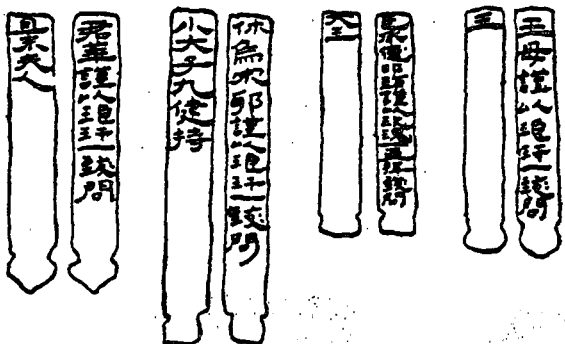 王母謹以琅玕一致問
王
臣承德叩頭謹以玫瑰一再拜致問
大王
休烏宋耶謹以琅玕一致問
小大子九健持
君華謹以琅玕一致問
且末夫人